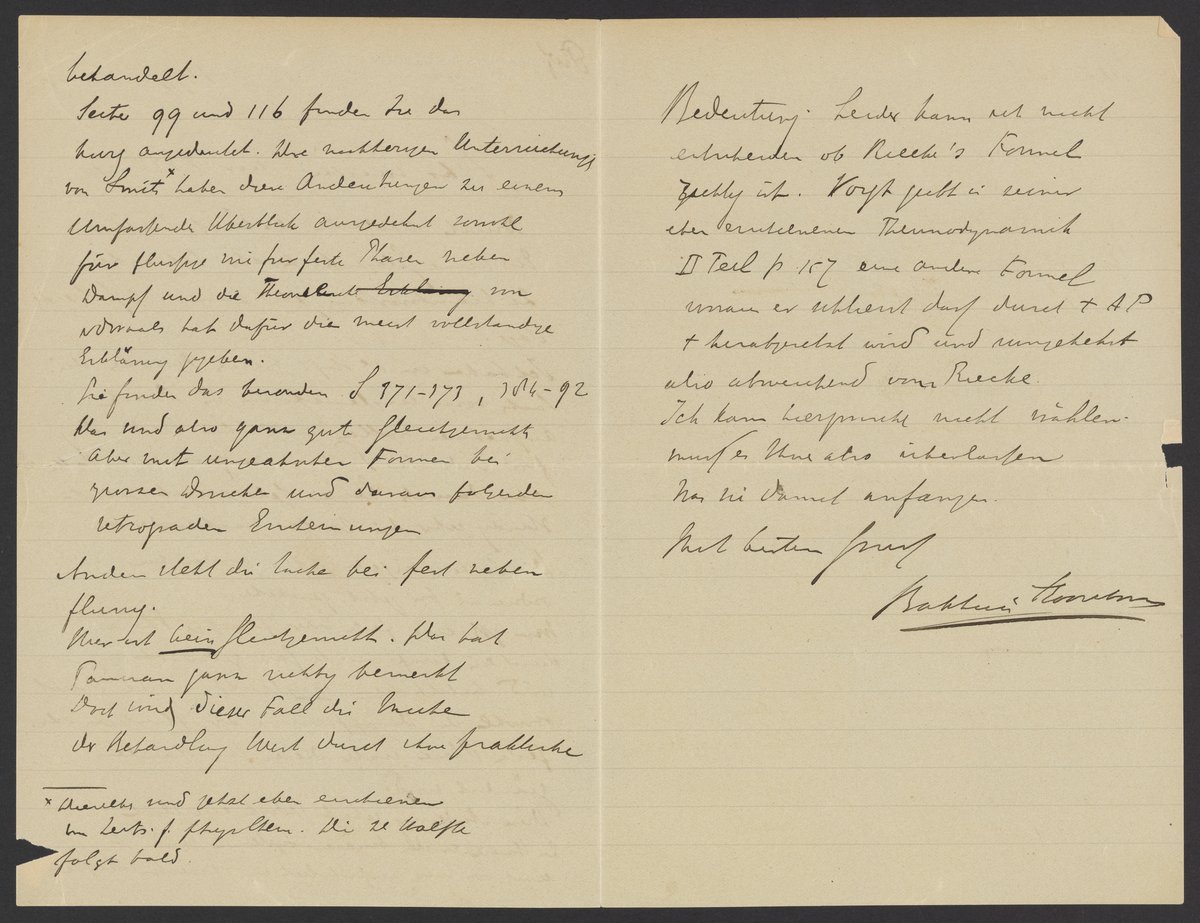 behandelt.
Seite 99 und 116 finden Sie das
kurz angedeutet. Die nachherigen Untersuchungen
von Smits x haben diese Andeutungen zu einem
umfassenden Überblick ausgedehnt sowohl
für flussige wie fur feste Phasen neben
Dampf und die Theorie von
v d Waals hat dafür die meist vollständige
Erklärung gegeben.
Sie finden das besonders S 371-373, 384-92
Das sind also ganz gute Gleichgewichte
Aber mit ungeahnten Formen bei
grossen Drucken und daraus folgenden
retrograden Erscheinungen
Anders steht die Sache bei fest neben
flussig.
Hier ist kein Gleichgewicht. Das hat
Tamman ganz richtig bemerkt
Doch wird dieser Fall die Muhe
der Behandlung Wert durch ihre praktische
x Dieselbe sind jetzt eben erschienen
im Zeits. f. physChem. Die 2e Halfte
folgt bald.
Bedeutung. Leider kann ich nicht
entscheiden ob Riecke's Formel
richtig ist. Voigt giebt in seiner
eben erschienenen Thermodynamik
II Teil p 157 eine andere Formel
woraus er schliesst dass durch + ΔP
t herabgesetzt wird und umgekehrt
also abweichend von Riecke.
Ich kann hierzwischen nicht wählen.
muss es Ihnen also überlassen
was Sie damit anfangen.
Mit besten Gruss
Bakhuis Roozeboom